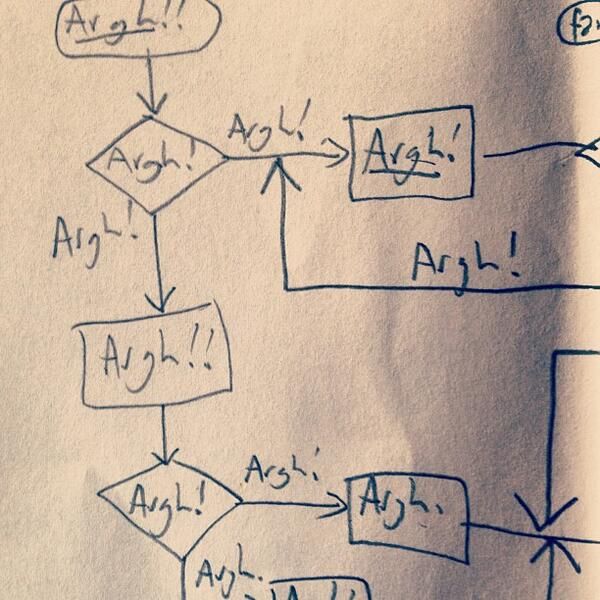 Argh!!
Argh!
Argh!
Argh!
Argh!
Argh!
Argh!!
Argh!
Argh!
Argh.
Argh.